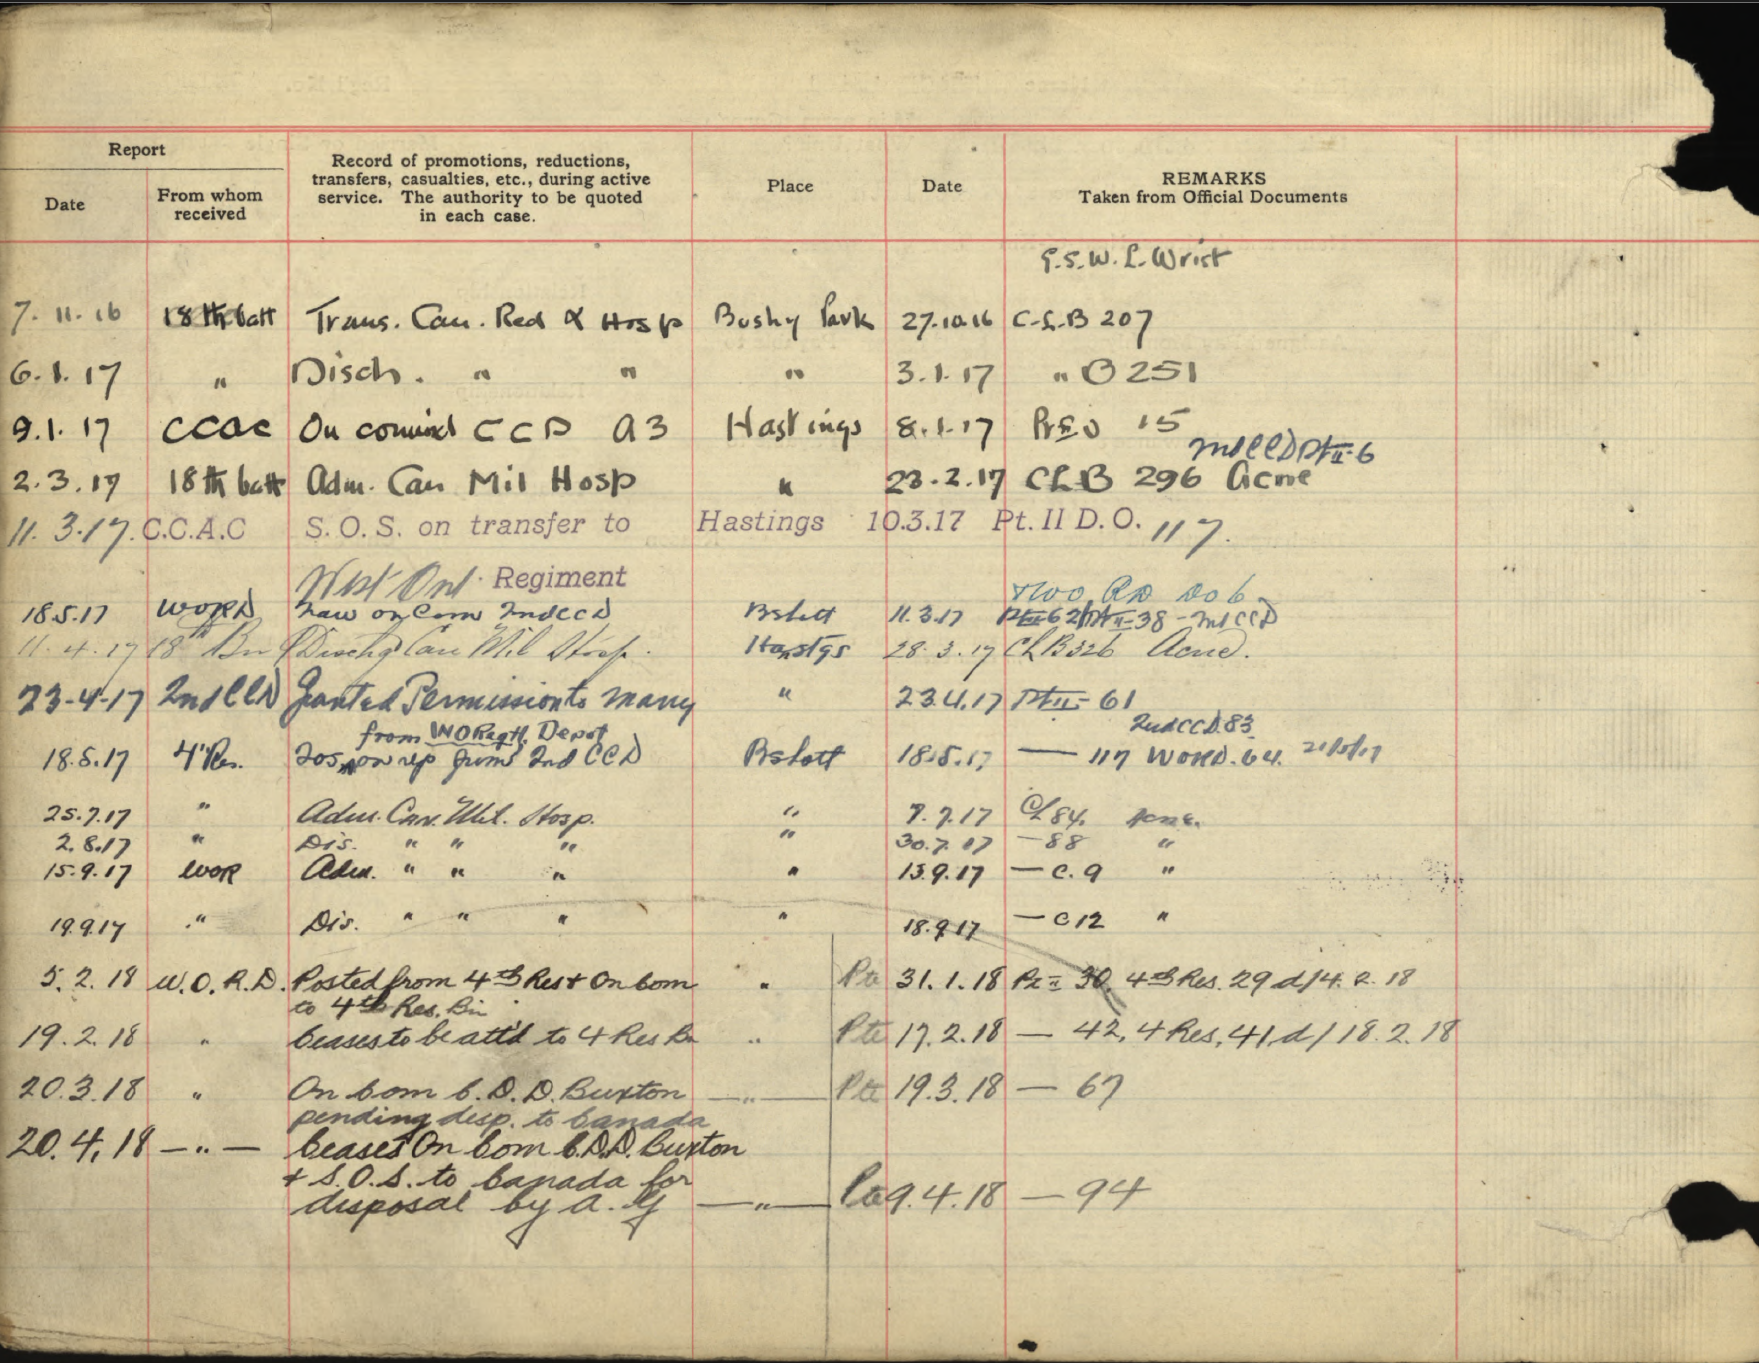 Report
Date
From whom
received
Record of promotions, reductions,
transfers, casualties, etc., during active
service. The authority to be quoted
in each case.
Place
Date
REMARKS
Taken from Official Documents
G.S.W. L. Wrist
7. 11. 16 18th batt Trans. Can. Red X Hosp Bushy Park 27.10.16 C.L.B 207
6. 1. 17 " Disch. " " " 3. 1. 17 " B 251
9. 1. 17 CCAC On command CCD A3 Hastings 8. 1. 17 PtII 0 15
2nd CCD Pt II-6
2. 3. 17 18th batt Adm. Can Mil Hosp " 23. 2. 17 CLB 296 Acne
11. 3. 17. C.C.A.C S.O.S. on transfer to Hastings 10.3.17 Pt. II D.O. 117.
West Ont. Regiment
WORD DO 6
18.5.17 WORD on Com 2nd CCD Bshott 11. 3. 17 Pt II-62 Pt II-38 - 2nd CCD
11. 4. 17 18th Bn Dischg Can Mil Hosp. Hastgs 28. 3. 17 CLB 326 Acne.
23-4-17 2nd CCD Granted Permission to marry " 23.4.17 Pt II- 61
from WORegtl Depot 2nd CCD. 83
18.5.17 4th Res. TOS on rep from 2nd CCD Bshott 18.5.17 — 117 WORD. 64. 21/5/17
25.7.17 " Adm. Can. Mil. Hosp. " 7. 7. 17 CL 84. Acne.
2. 8. 17 " Dis. " " " " 30. 7. 17 — 88 "
15. 9. 17 WOR Adm. " " " " 13. 9. 17 — C. 9 "
19.9.17 " Dis. " " " " 18. 9. 17 — C 12 "
5. 2. 18 W. O. R. D. Posted from 4th Res & On Com " Pte 31. 1. 18 Pt II 30, 4th Res. 29 d/4. 2. 18
to 4th Res. Bn
19. 2. 18 " Ceases to be att'd to 4 Res Bn " Pte 17. 2. 18 — 42, 4 Res, 41, d/18. 2. 18
20. 3. 18 " On Com C. D. D. Buxton — " — Pte 19. 3. 18 — 67
pending desp. to Canada
20. 4. 18 — " — Ceases On Com C.D.D. Buxton
+ S.O.S. to Canada for
disposal by A. G — " — Pte 9. 4. 18 — 94